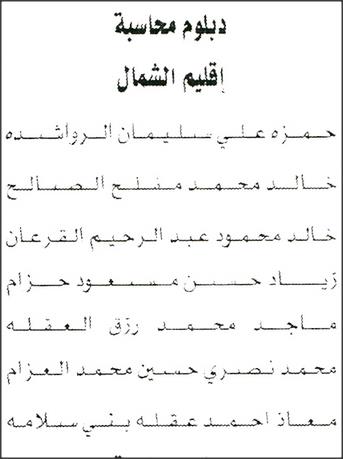 دبلوم محاسبة
إقليم الشمال
حمزه علي سليمان الرواشده
خالد محمد مفلح الصالح
خالد محمود عبد الرحيم القرعان
زياد حسن مسعود حزام
ماجد محمد رزق العقله
محمد نصري حسين محمد العزام
معاذ احمد عقله بني سلامه